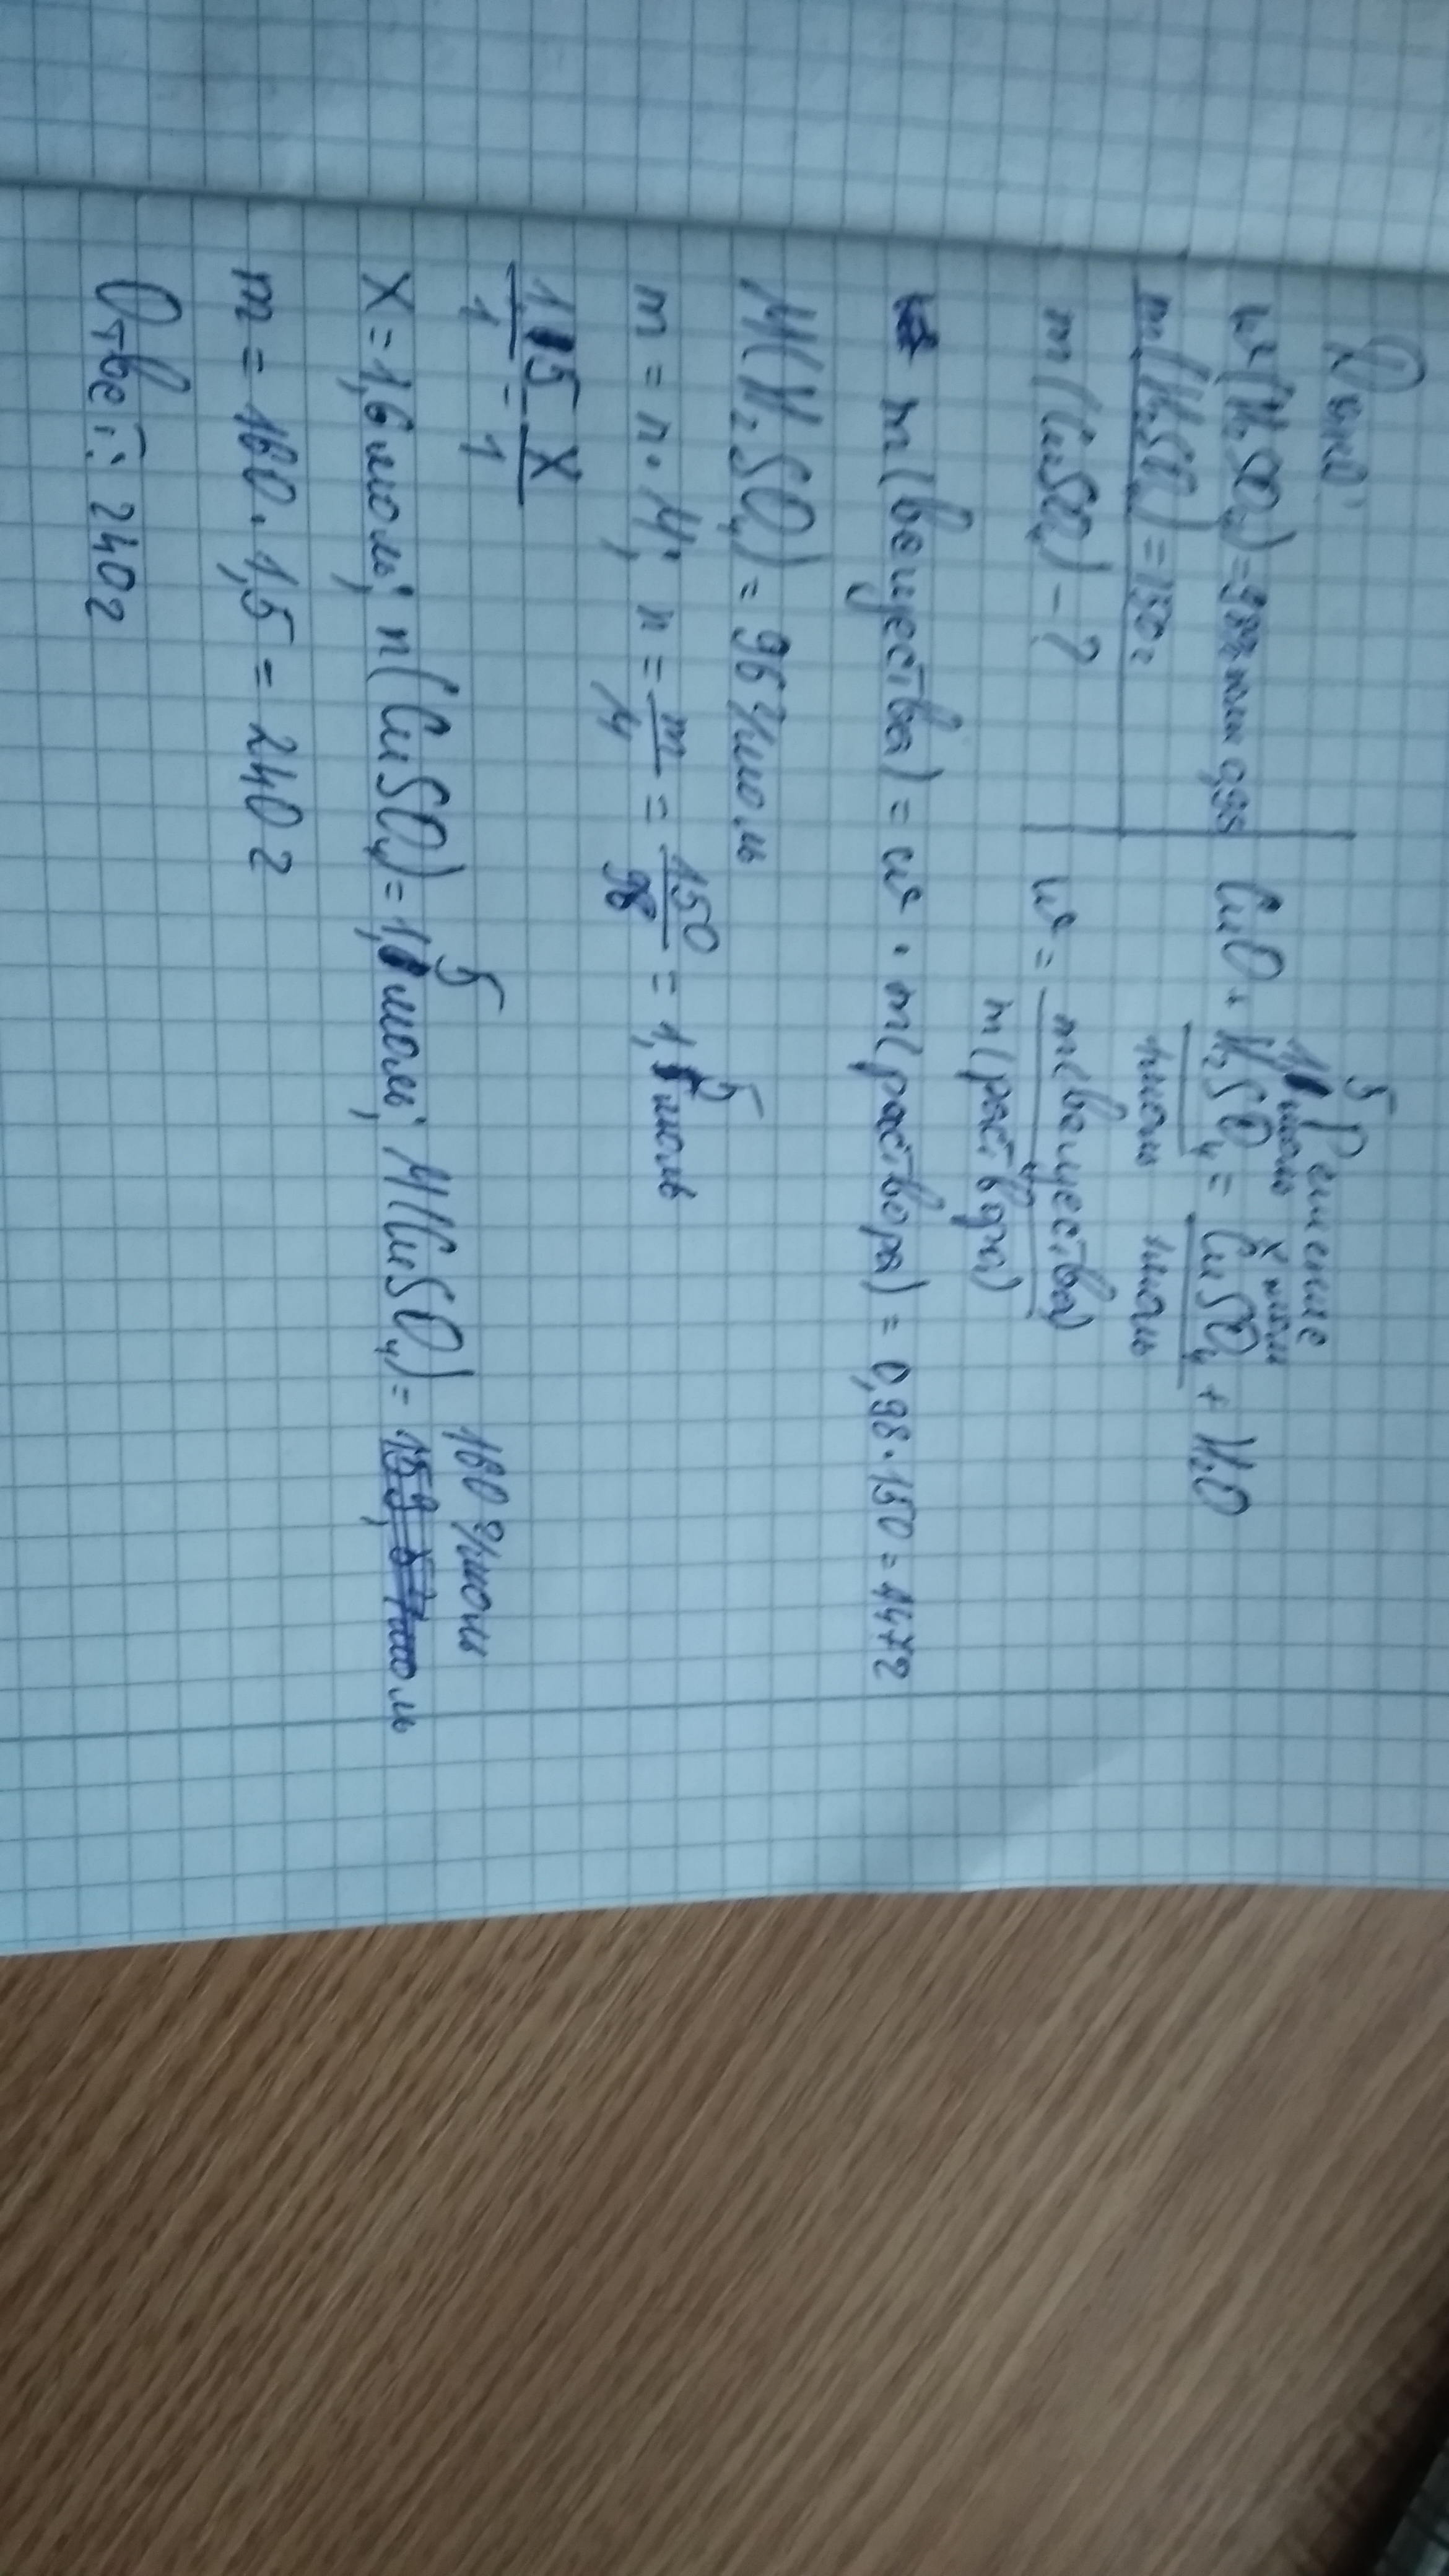 Дано: Решение
w(H₂SO₄) = 98% или 0,98
m(H₂SO₄) = 150г
m(CuSO₄) - ?
15 моль x моль
CuO + H₂SO₄ = CuSO₄ + H₂O
1моль 1моль
w = m(вещества) / m(раствора)
m(вещества) = w · m(раствора) = 0,98 · 150 = 147г
M(H₂SO₄) = 96 г/моль
m = n · M; n = m/M = 150/98 = 1,5 моль
1,5/1 = X/1
X = 1,6 моль; n(CuSO₄) = 1,5 моль; M(CuSO₄) = 160 г/моль
m = 160 · 1,5 = 240 г
Ответ: 240г